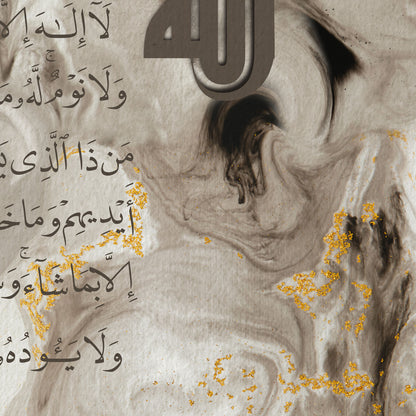 الله
لَآ إِلَـٰهَ إِلَّا
وَلَا نَوْمٌ ۚ لَّهُۥ وَمَا
مَن ذَا ٱلَّذِى
أَيْدِيهِمْ وَمَا خَ
إِلَّا بِمَا شَآءَ ۚ وَ
وَلَا يَـُٔودُهُۥ